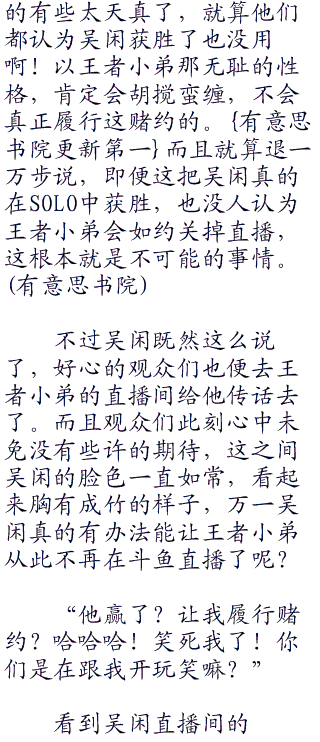 的有些太天真了，就算他们
都认为吴闲获胜了也没用
啊！以王者小弟那无耻的性
格，肯定会胡搅蛮缠，不会
真正履行这赌约的。{有意思
书院更新第一}而且就算退一
万步说，即便这把吴闲真的
在SOLO中获胜，也没人认为
王者小弟会如约关掉直播，
这根本就是不可能的事情。
(有意思书院)
不过吴闲既然这么说
了，好心的观众们也便去王
者小弟的直播间给他传话去
了。而且观众们此刻心中未
免没有些许的期待，这之间
吴闲的脸色一直如常，看起
来胸有成竹的样子，万一吴
闲真的有办法能让王者小弟
从此不再在斗鱼直播了呢？
“他赢了？让我履行赌
约？哈哈哈！笑死我了！你
们是在跟我开玩笑嘛？”
看到吴闲直播间的